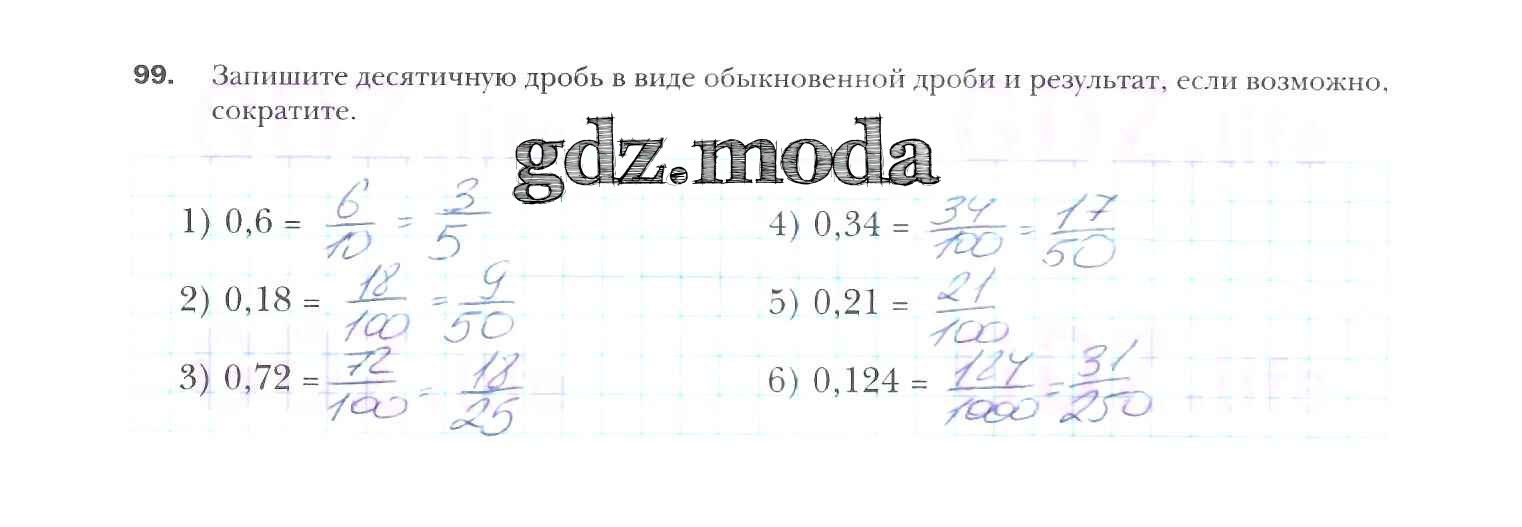 99. Запишите десятичную дробь в виде обыкновенной дроби и результат, если возможно,
сократите.
gdz.moda
1) 0,6 = 6/10 = 3/5
2) 0,18 = 18/100 = 9/50
3) 0,72 = 72/100 = 18/25
4) 0,34 = 34/100 = 17/50
5) 0,21 = 21/100
6) 0,124 = 124/1000 = 31/250